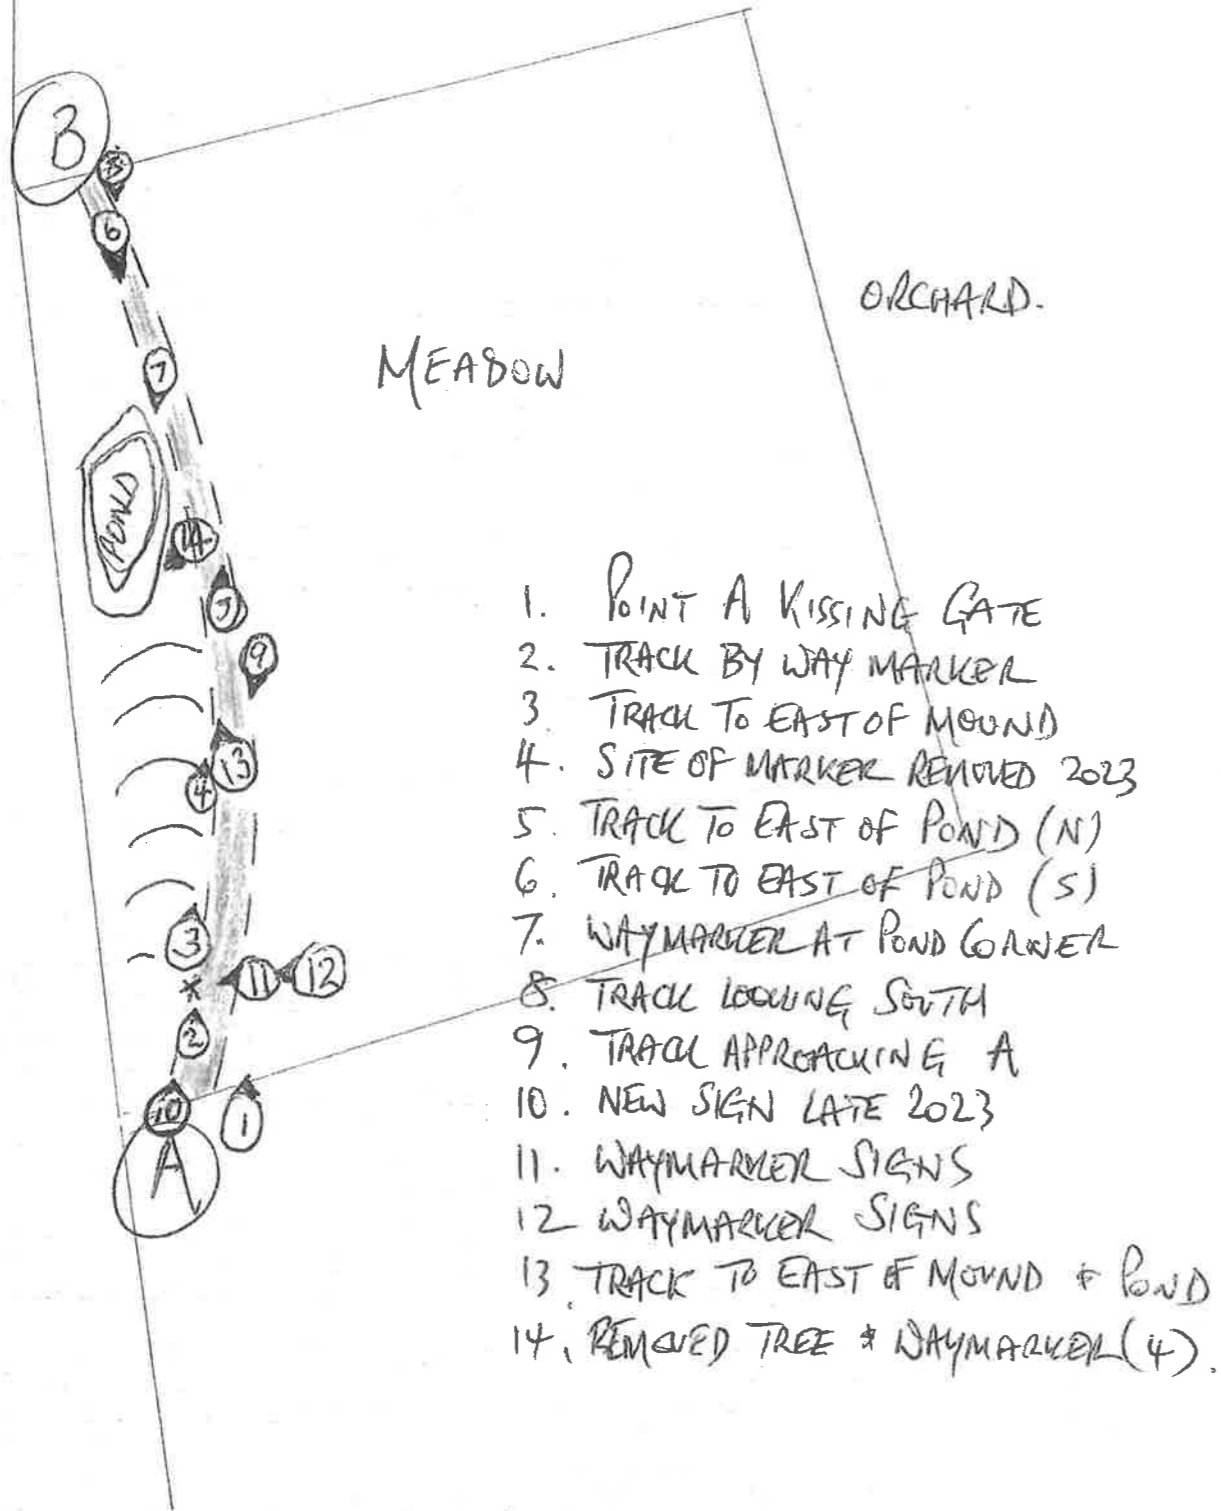 B
6
ORCHARD.
MEADOW
7
POND
14
9
13
4
3
11
12
2
10
1
A
1. POINT A KISSING GATE
2. TRACK BY WAY MARKER
3 TRACK TO EAST OF MOUND
4. SITE OF MARKER REMOVED 2023
5. TRACK TO EAST OF POND (N)
6. TRACK TO EAST OF POND (S)
7. WAYMARKER AT POND CORNER
8. TRACK LOOKING SOUTH
9. TRACK APPROACHING A
10. NEW SIGN LATE 2023
11. WAYMARKER SIGNS
12 WAYMARKER SIGNS
13. TRACK TO EAST OF MOUND & POND
14. REMOVED TREE & WAYMARKER (4).